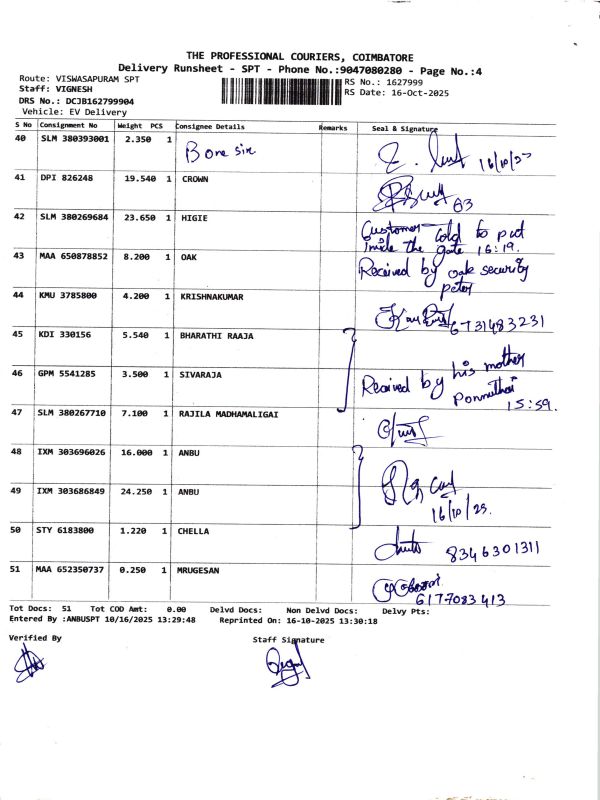 THE PROFESSIONAL COURIERS, COIMBATORE
Delivery Runsheet - SPT - Phone No.:9047080280 - Page No.:4
Route: VISWASAPURAM SPT
RS No.: 1627999
Staff: VIGNESH
RS Date: 16-Oct-2025
DRS No.: DCJB162799904
Vehicle: EV Delivery
S No Consignment No Weight PCS Consignee Details Remarks Seal & Signature
40 SLM 380393001 2.350 1 Bone sir 16/10/25
41 DPI 826248 19.540 1 CROWN 63
42 SLM 380269684 23.650 1 HIGIE Customer told to put
inside the gate 16:19.
43 MAA 650878852 8.200 1 OAK Received by oak security
peter
44 KMU 3785800 4.200 1 KRISHNAKUMAR 6731483231
45 KDI 330156 5.540 1 BHARATHI RAAJA
46 GPM 5541285 3.500 1 SIVARAJA Received by his mother
Ponnuthai
15:59.
47 SLM 380267710 7.100 1 RAJILA MADHAMALIGAI
48 IXM 303696026 16.000 1 ANBU
49 IXM 303686849 24.250 1 ANBU
16/10/25.
50 STY 6183800 1.220 1 CHELLA 8346301311
51 MAA 652350737 0.250 1 MRUGESAN
6177083413
Tot Docs: 51 Tot COD Amt: 0.00 Delvd Docs: Non Delvd Docs: Delvy Pts:
Entered By :ANBUSPT 10/16/2025 13:29:48 Reprinted On: 16-10-2025 13:30:18
Verified By Staff Signature